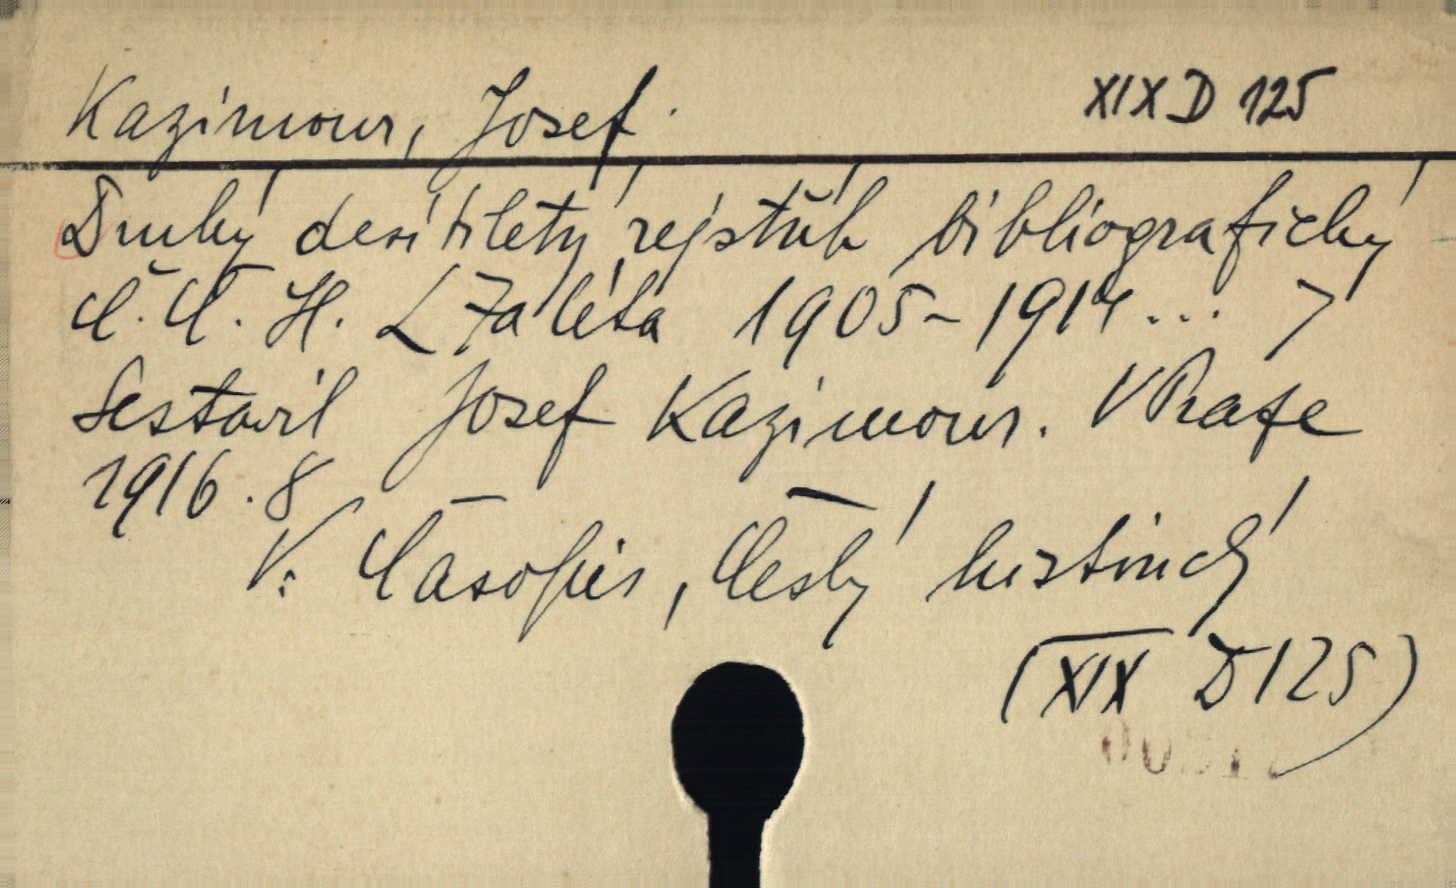 Kazimour, Josef.
XIX D 125
Druhý desítiletý rejstřík bibliografický
Č. Č. H. < Za léta 1905-1914... >
Sestavil Josef Kazimour. V Praze
1916. 8
V: Časopis, Český historický
(XIX D 125)